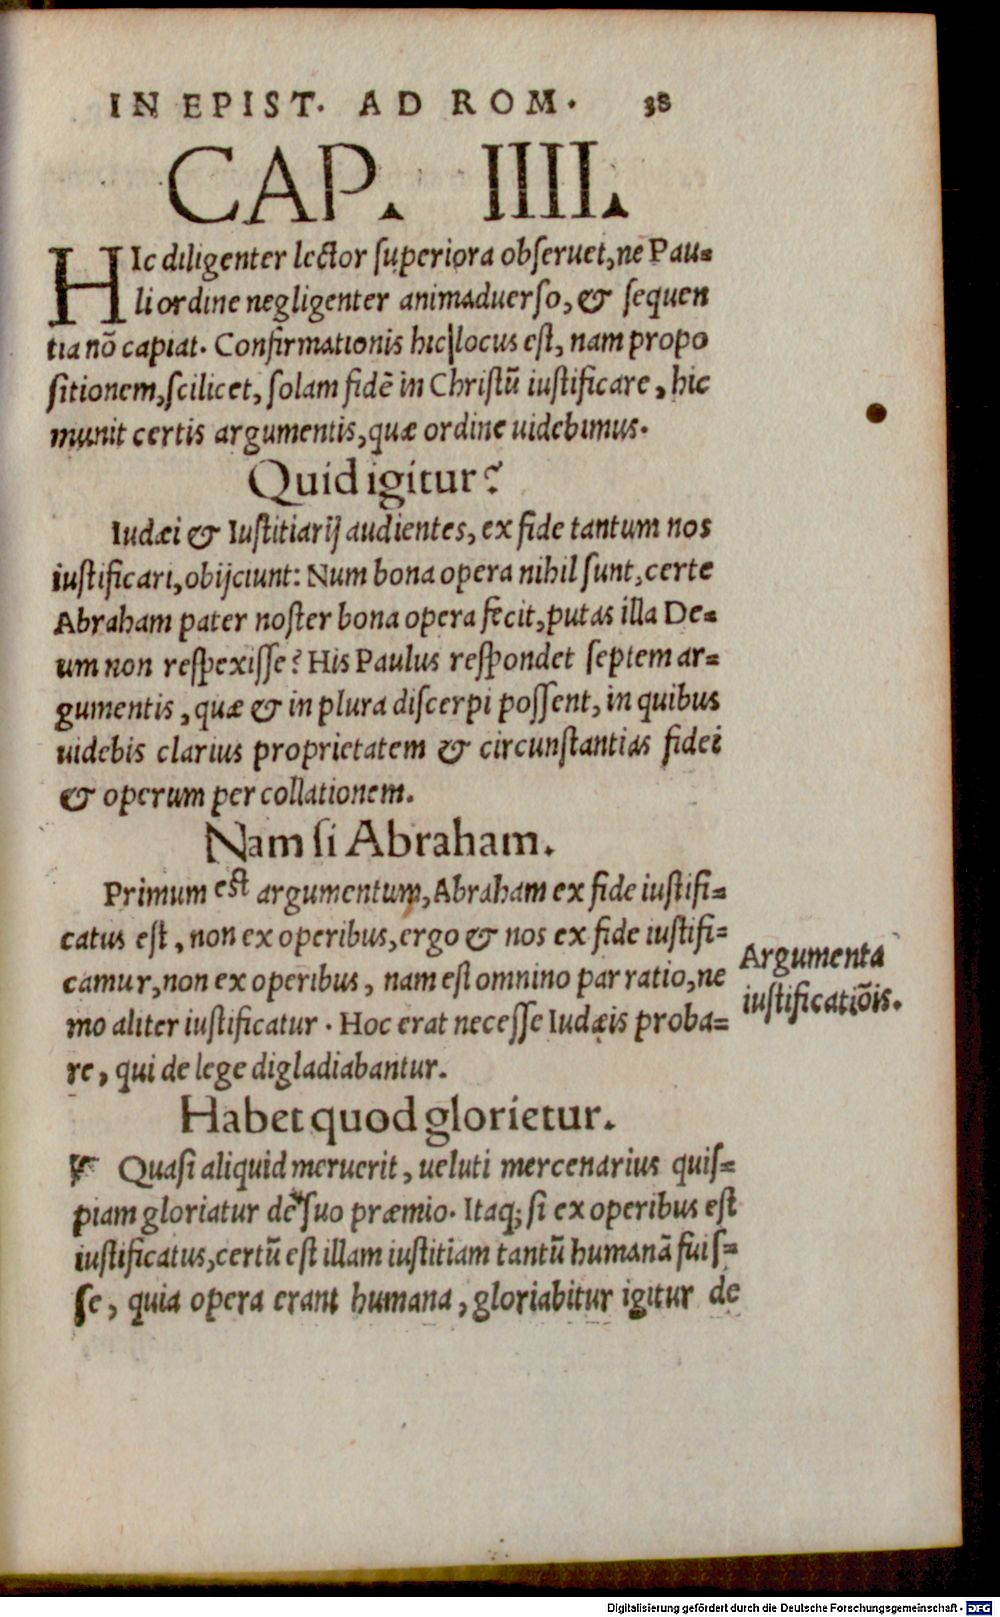 IN EPIST. AD ROM. 38
CAP. IIII.
HIc diligenter lector superiora obseruet, ne Pau=
li ordine negligenter animaduerso, & sequen
tia nõ capiat. Confirmationis hic locus est, nam propo
sitionem, scilicet, solam fidẽ in Christũ iustificare, hic
munit certis argumentis, quæ ordine uidebimus.
Quid igitur?
Iudæi & Iustitiarij audientes, ex fide tantum nos
iustificari, obijciunt: Num bona opera nihil sunt, certe
Abraham pater noster bona opera fecit, putas illa De=
um non respexisse? His Paulus respondet septem ar=
gumentis, quæ & in plura discerpi possent, in quibus
uidebis clarius proprietatem & circunstantias fidei
& operum per collationem.
Nam si Abraham.
Primum est argumentum, Abraham ex fide iustifi=
catus est, non ex operibus, ergo & nos ex fide iustifi=
camur, non ex operibus, nam est omnino par ratio, ne
mo aliter iustificatur. Hoc erat necesse Iudæis proba=
re, qui de lege digladiabantur.
Argumenta
iustificatiõis.
Habet quod glorietur.
Quasi aliquid meruerit, ueluti mercenarius quis=
piam gloriatur de suo præmio. Itaq; si ex operibus est
iustificatus, certũ est illam iustitiam tantũ humanã fuis=
se, quia opera erant humana, gloriabitur igitur de
Digitalisierung gefördert durch die Deutsche Forschungsgemeinschaft - DFG